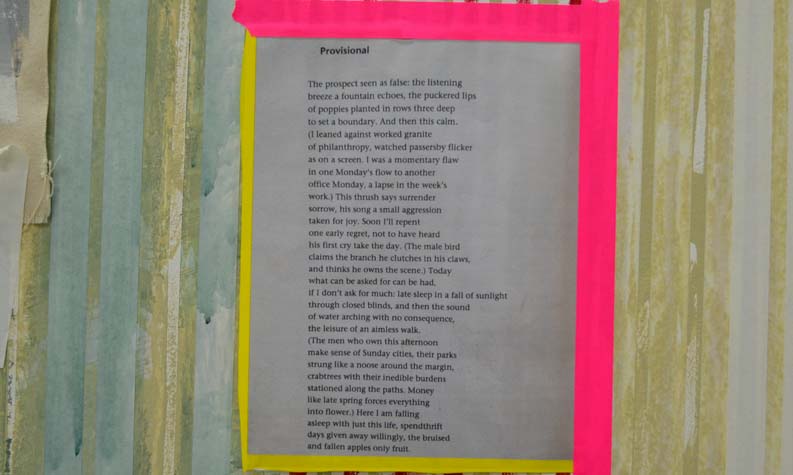 Provisional
The prospect seen as false: the listening
breeze a fountain echoes, the puckered lips
of poppies planted in rows three deep
to set a boundary. And then this calm.
(I leaned against worked granite
of philanthropy, watched passersby flicker
as on a screen. I was a momentary flaw
in one Monday's flow to another
office Monday, a lapse in the week's
work.) This thrush says surrender
sorrow, his song a small aggression
taken for joy. Soon I'll repent
one early regret, not to have heard
his first cry take the day. (The male bird
claims the branch he clutches in his claws,
and thinks he owns the scene.) Today
what can be asked for can be had,
if I don't ask for much: late sleep in a fall of sunlight
through closed blinds, and then the sound
of water arching with no consequence,
the leisure of an aimless walk.
(The men who own this afternoon
make sense of Sunday cities, their parks
strung like a noose around the margin,
crabtrees with their inedible burdens
stationed along the paths. Money
like late spring forces everything
into flower.) Here I am falling
asleep with just this life, spendthrift
days given away willingly, the bruised
and fallen apples only fruit.